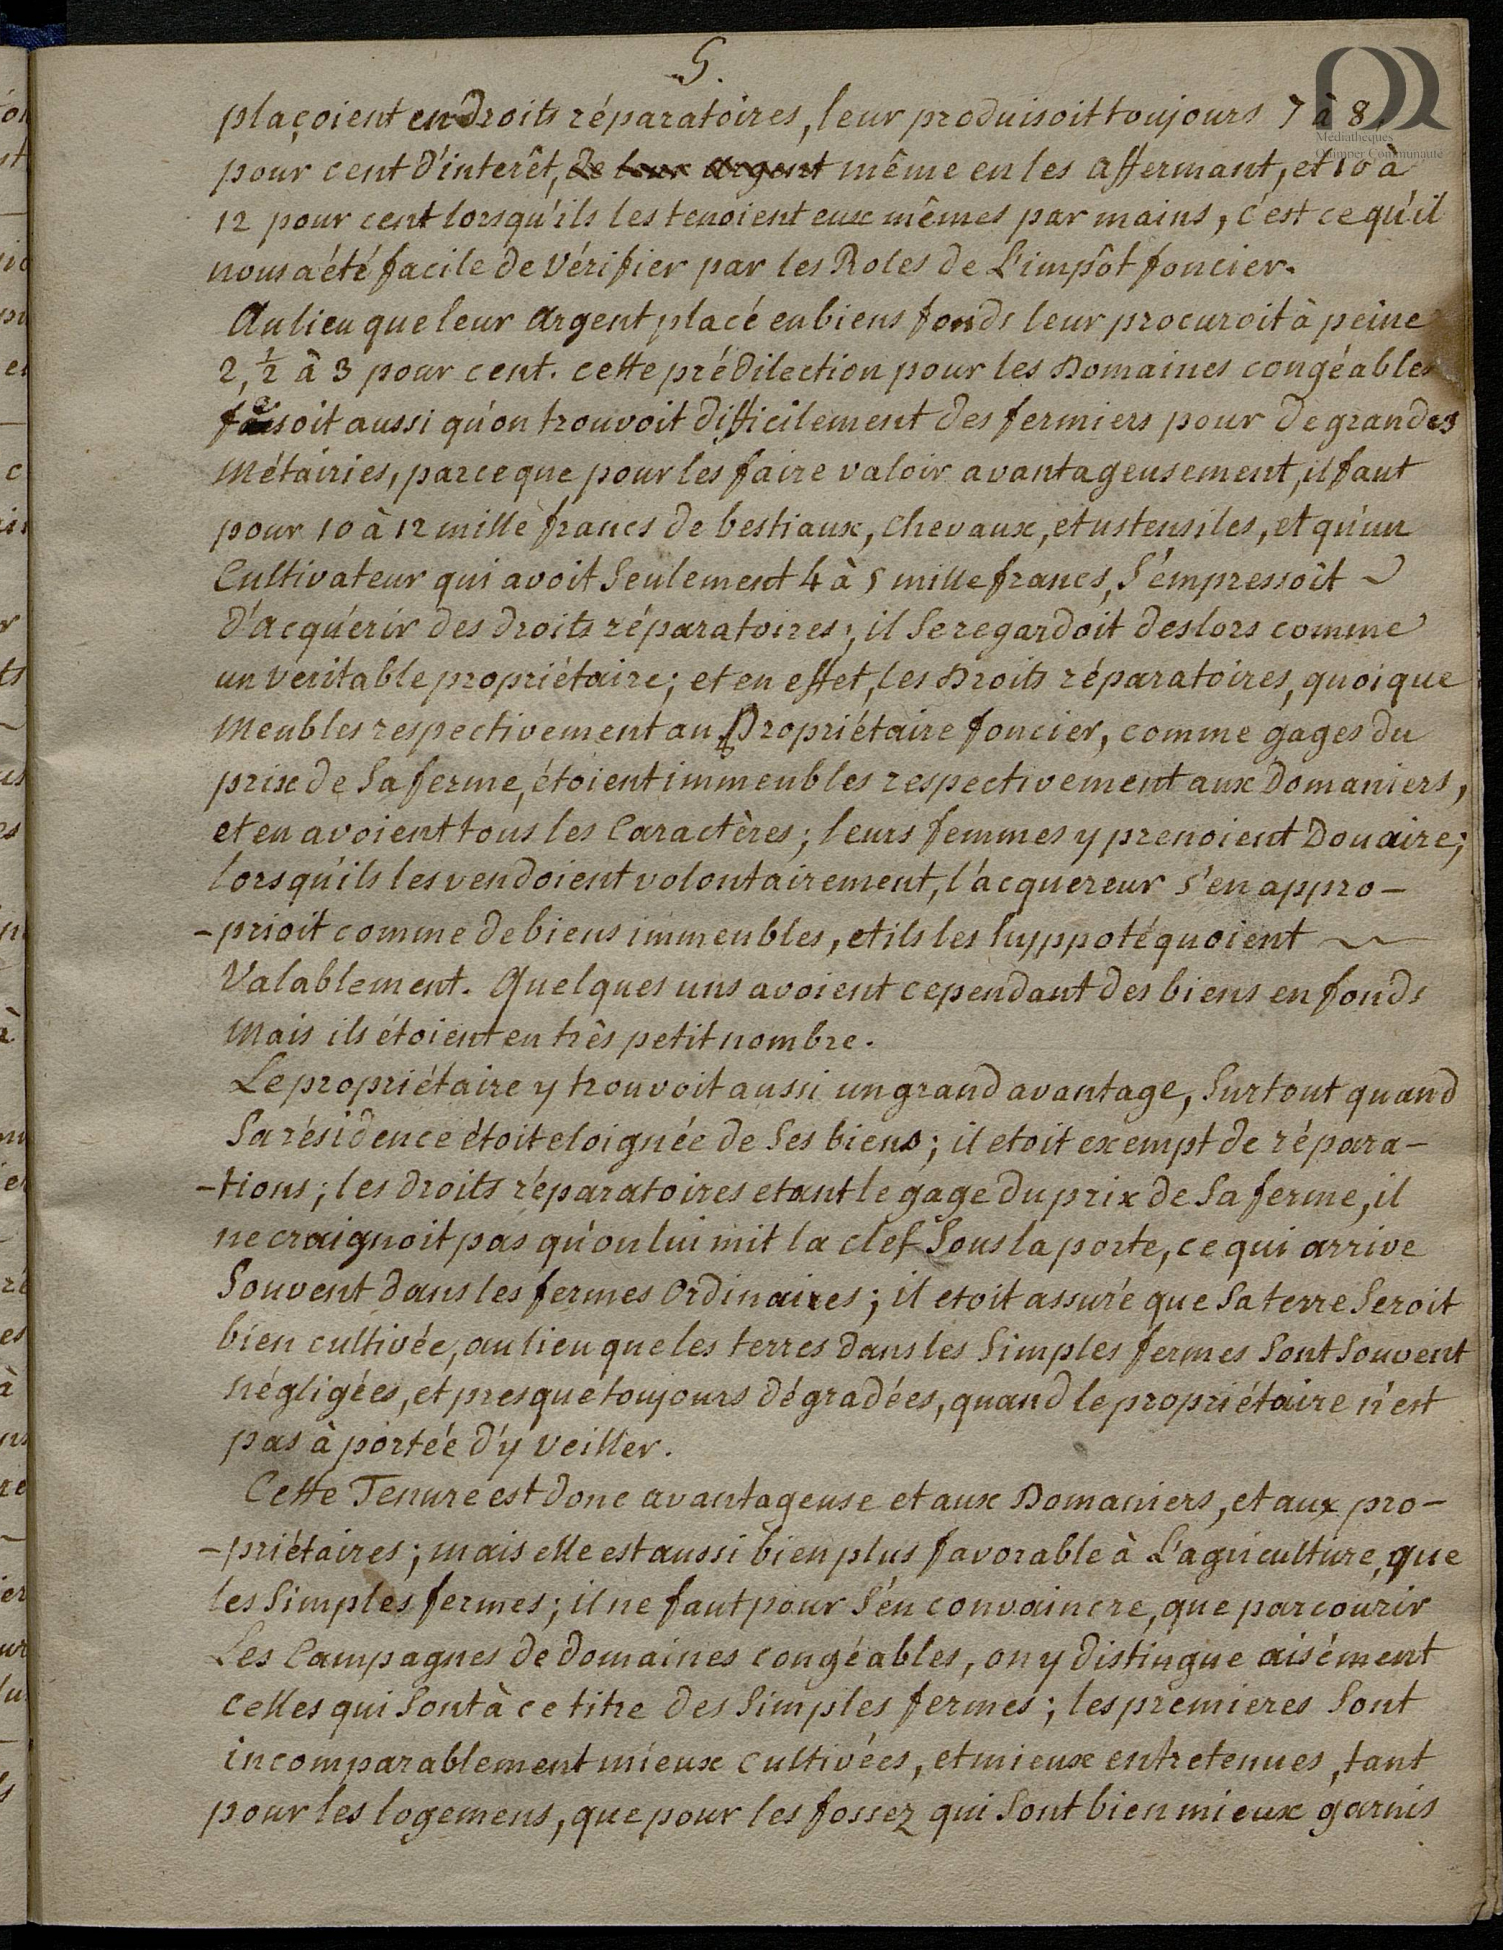 5.
plaçoient en Droits réparatoires, leur produisoit toujours 7 à 8.
pour cent d'interêt, de leur argent même en les affermant, et 10 à
12 pour cent lorsqu'ils les tenoient eux mêmes par mains, c'est ce qu'il
nous a été facile de Vérifier par les Roles de L'impôt foncier.
Au lieu que leur Argent placé en biens fonds leur procuroit à peine
2, ½ à 3 pour cent. cette prédilection pour les Domaines congéables
faisoit aussi qu'on trouvoit difficilement des fermiers pour de grandes
Métairies, parce que pour les faire valoir avantageusement, il faut
pour 10 à 12 mille francs de bestiaux, chevaux, et ustensiles, et qu'un
Cultivateur qui avoit Seulement 4 à 5 mille francs, S'empressoit
d'acquérir des droits réparatoires; il Se regardoit deslors comme
un veritable propriétaire; et en effet, les Droits réparatoires, quoique
Meubles respectivement au Propriétaire foncier, comme gages du
prix de Sa ferme, étoient immeubles respectivement aux Domaniers,
et en avoient tous les Caractères; leurs femmes y prenoient Douaire;
lorsqu'ils les vendoient volontairement, l'acquereur s'en appro-
-prioit comme de biens immeubles, et ils les hyppotéquoient
Valablement. Quelques uns avoient cependant des biens en fonds
Mais ils étoient en très petit nombre.
Le propriétaire y trouvoit aussi un grand avantage, Surtout quand
Sa résidence étoit eloignée de Ses biens; il etoit exempt de répara-
-tions; les droits réparatoires etant le gage du prix de Sa ferme, il
ne craignoit pas qu'on lui mit la clef Sous la porte, ce qui arrive
Souvent dans les fermes Ordinaires; il etoit assuré que Sa terre Seroit
bien cultivée, au lieu que les terres dans les Simples fermes Sont Souvent
négligées, et presque toujours dégradées, quand le propriétaire n'est
pas à portée d'y veiller.
Cette Tenure est donc avantageuse et aux Domaniers, et aux pro-
-priétaires; mais elle est aussi bien plus favorable à L'agriculture, que
les Simples fermes; il ne faut pour S'en convaincre, que parcourir
Les Campagnes de domaines congéables, on y distingue aisément
Celles qui Sont à ce titre des Simples fermes; les premieres Sont
incomparablement mieux cultivées, et mieux entretenues, tant
pour les logemens, que pour les fossez qui Sont bien mieux garnis
Médiathèques
Quimper Communauté